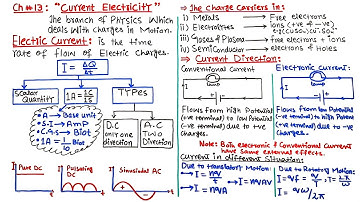 Ch # 13: "Current Electricity"
The branch of Physics Which
deals with charges in Motion.
Electric Current: is the time
rate of flow of Electric Charges.
I = ΔQ/Δt
Scalar
Quantity
1A = 1C/1S
TYPES
• A → Base unit
• S.I → Amp
• C.G.S → Biot
• 1A = 1/10 Biot
D.C
only one
direction
A.C
Two
Direction
Pure DC
Pulsating
DC
Sinusoidal AC
I
t
I
t
I
t
⇒ The Charge Carriers in:
i) Metals → Free electrons
ii) Electrolytes → ions (+ve of -ve)
iii) Gases & Plasma → Free electrons & ions
iv) SemiConductor → electrons & Holes
⇒ Current Direction:
Conventional Current
Electronic Current:
Flows from high Potential
(+ve terminal) to low Potential
(-ve terminal) due to +ve
charges.
Flows from low Potential
(-ve terminal) to high Potential
(+ve terminal) due to -ve
charges.
Note: Both electronic & Conventional Current
have same external effects.
Current in different Situation:
Due to translatory Motion:
Due to Rotatory Motion: